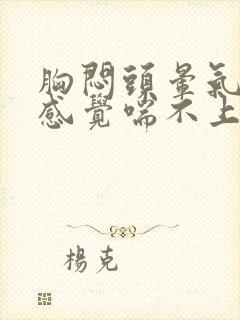 胸悶頭暈氣
感覺喘不上
楊克